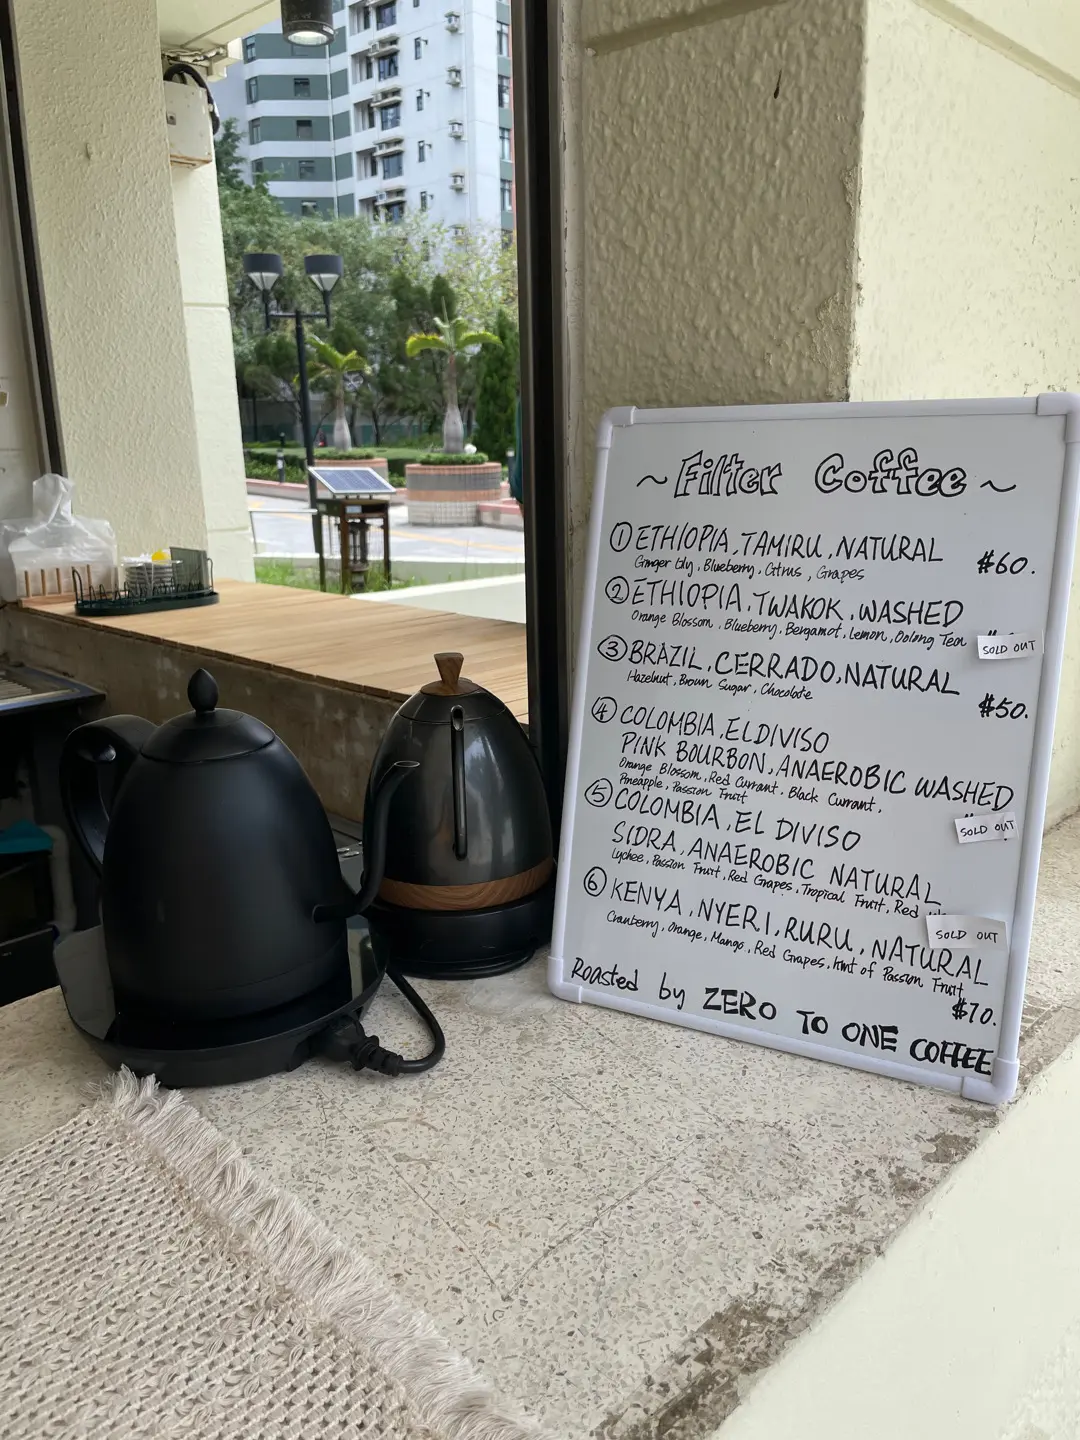 ~ Filter Coffee ~
① ETHIOPIA, TAMIRU, NATURAL
Ginger Lily, Blueberry, Citrus, Grapes
$60.
② ETHIOPIA, TWAKOK, WASHED
Orange Blossom, Blueberry, Bergamot, Lemon, Oolong Tea
SOLD OUT
③ BRAZIL, CERRADO, NATURAL
Hazelnut, Brown Sugar, Chocolate
$50.
④ COLOMBIA, EL DIVISO
PINK BOURBON, ANAEROBIC WASHED
Orange Blossom, Red Currant, Black Currant,
Pineapple, Passion Fruit
SOLD OUT
⑤ COLOMBIA, EL DIVISO
SIDRA, ANAEROBIC NATURAL
Lychee, Passion Fruit, Red Grapes, Tropical Fruit, Red
SOLD OUT
⑥ KENYA, NYERI, RURU, NATURAL
Cranberry, Orange, Mango, Red Grapes, Hint of Passion Fruit
$70.
Roasted by ZERO TO ONE COFFEE